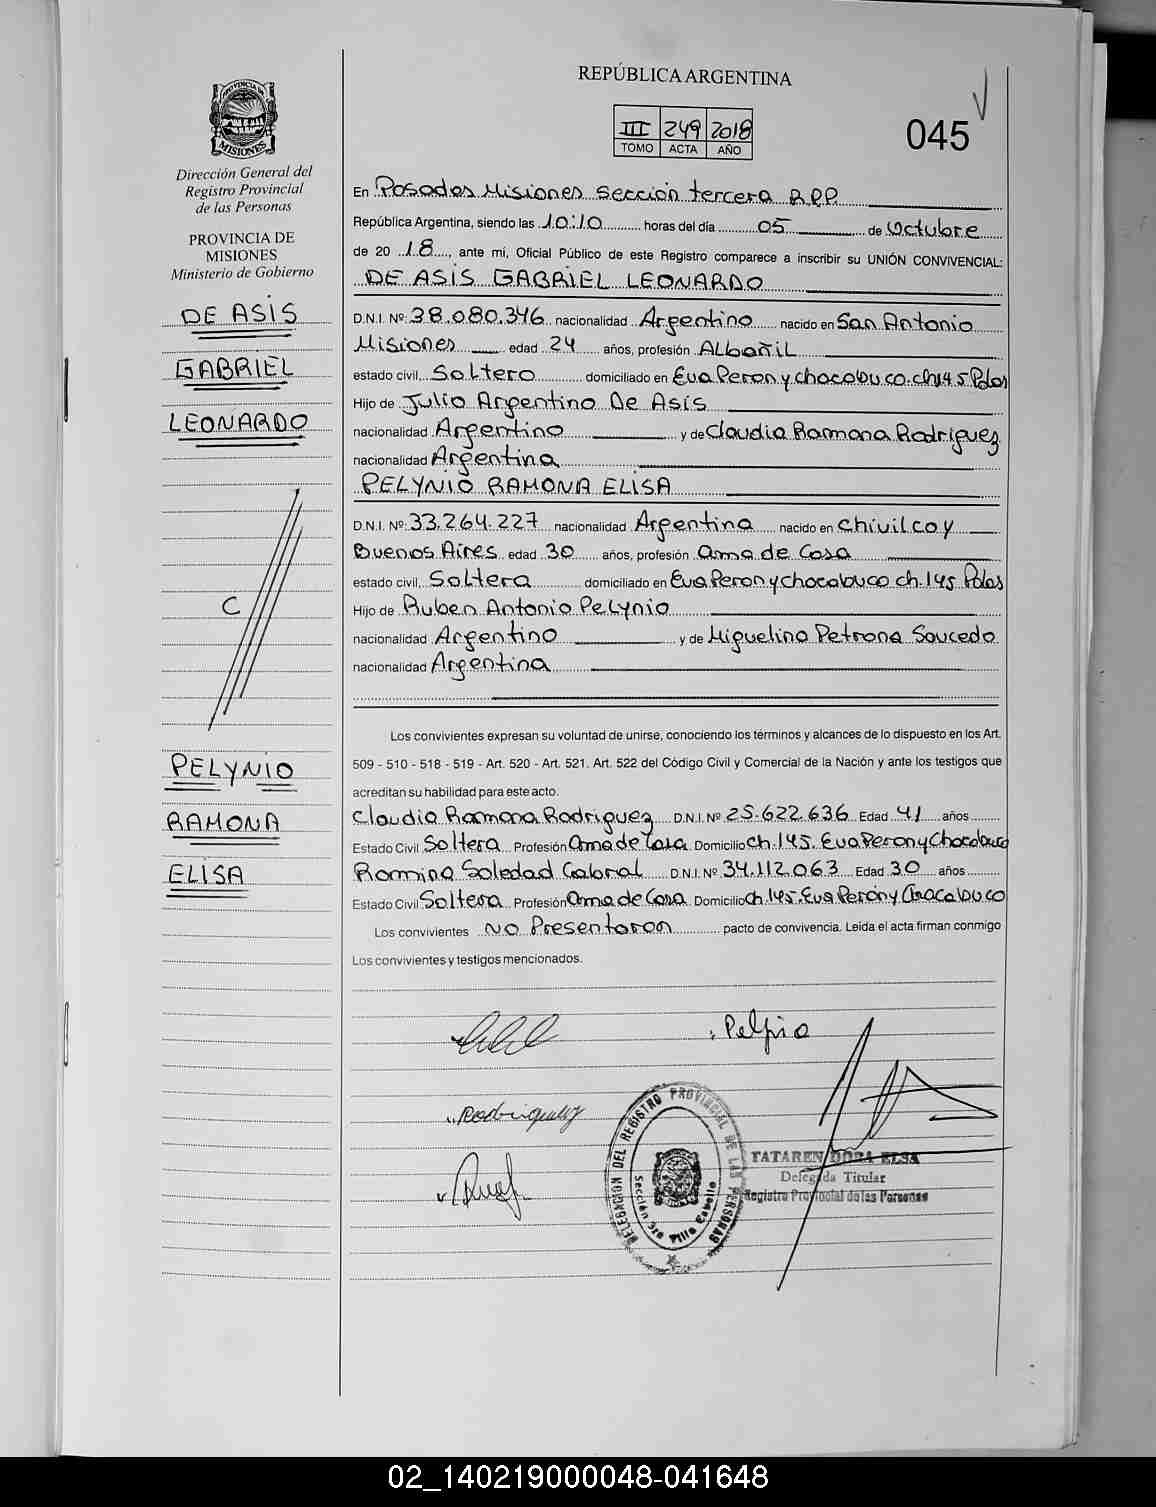 REPÚBLICA ARGENTINA
III 249 2018
TOMO ACTA AÑO
045
PROVINCIA DE
MISIONES
Dirección General del
Registro Provincial
de las Personas
PROVINCIA DE
MISIONES
Ministerio de Gobierno
DE ASIS
GABRIEL
LEONARDO
C
PELYNIO
RAMONA
ELISA
En Posadas Misiones sección tercera R.P.P.
República Argentina, siendo las 10:10 horas del día 05 de Octubre
de 2018, ante mí, Oficial Público de este Registro comparece a inscribir su UNIÓN CONVIVENCIAL:
DE ASIS GABRIEL LEONARDO
D.N.I. Nº 38.080.346 nacionalidad Argentino nacido en San Antonio
Misiones edad 24 años, profesión Albañil
estado civil Soltero domiciliado en Eva Peron y chacabuco ch 145 Pdas
Hijo de Julio Argentino De Asis
nacionalidad Argentino y de Claudia Ramona Rodriguez
nacionalidad Argentina
PELYNIO RAMONA ELISA
D.N.I. Nº 33.264.227 nacionalidad Argentina nacido en chivilcoy
Buenos Aires edad 30 años, profesión ama de Casa
estado civil Soltera domiciliado en Eva Peron y chacabuco ch. 145 Pdas
Hijo de Ruben Antonio Pelynio
nacionalidad Argentino y de Miguelina Petrona Saucedo
nacionalidad Argentina
Los convivientes expresan su voluntad de unirse, conociendo los términos y alcances de lo dispuesto en los Art.
509 - 510 - 518 - 519 - Art. 520 - Art. 521. Art. 522 del Código Civil y Comercial de la Nación y ante los testigos que
acreditan su habilidad para este acto.
Claudia Ramona Rodriguez D.N.I. Nº 25.622.636 Edad 41 años
Estado Civil Soltera Profesión Ama de Casa Domicilio ch. 145. Eva Peron y Chacabuco
Romina Soledad Cabral D.N.I. Nº 34.112.063 Edad 30 años
Estado Civil Soltera Profesión Ama de Casa Domicilio ch. 145. Eva Perón y Chacabuco
Los convivientes No Presentaron pacto de convivencia. Leida el acta firman conmigo
Los convivientes y testigos mencionados.
Rodriguez
DELEGACION DEL REGISTRO PROVINCIAL DE LAS PERSONAS
Sección 3ra Villa Cabello
TATAREN DORA ELSA
Delegada Titular
Registro Provincial de las Personas
02_140219000048-041648